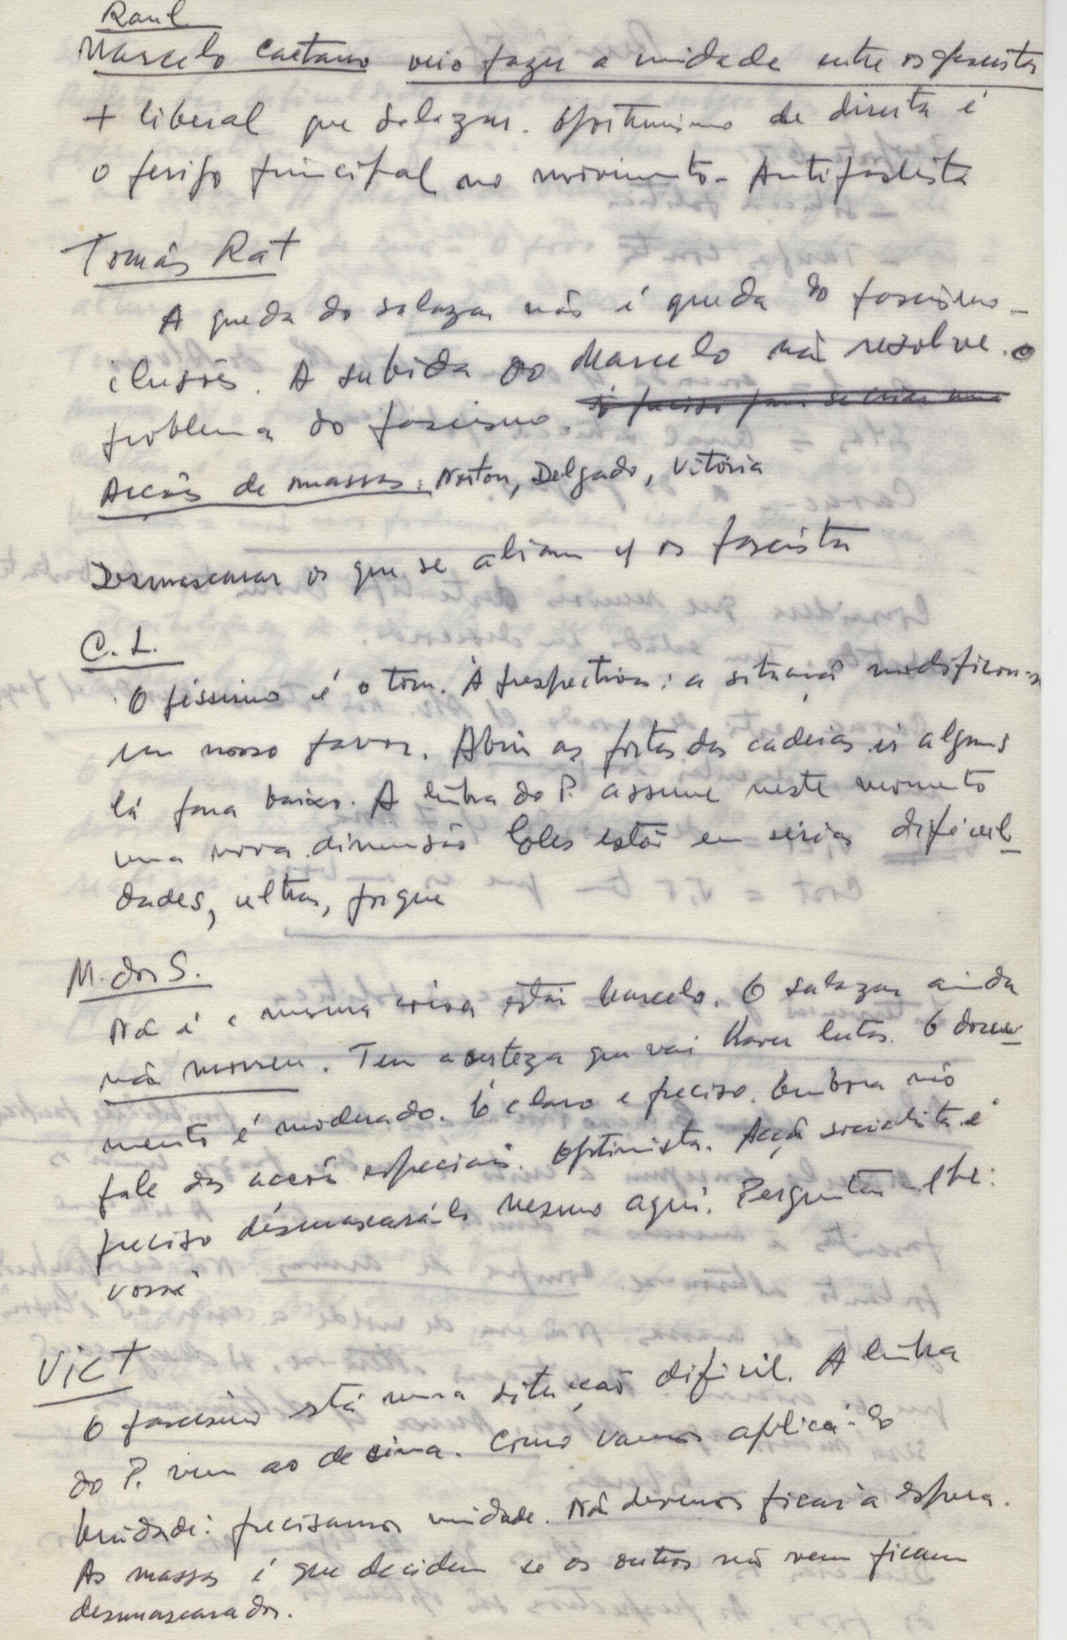 Raul
Marcelo Caetano veio fazer a unidade entre os fascistas
+ liberal que Salazar. Oportunismo de direita é
o perigo principal no movimento - Antifascista
Tomás Rat
A queda do Salazar não é queda do fascismo -
ilusões. A subida do Marcelo não resolve. o
problema do fascismo. é preciso para se criar uma
Acções de massas: Norton, Delgado, Vitória
Desmascarar os que se aliam c/ os fascistas
C. L.
O péssimo é o tom. A perspectiva: a situação modificou-se
em nosso favor. Abrir as portas das cadeias e ir alguns
lá para baixo. A linha do P. assume neste momento
uma nova dimensão Eles estão em sérias dificul-
dades, ultras, porque
M. dos S.
Não é a mesma coisa estar Marcelo. O Salazar ainda
não morreu. Tem a certeza que vai haver lutas. O docu-
mento é moderado. É claro e preciso. Embora não
fale das acções especiais. Optimista. Acção socialista é
preciso desmascará-la mesmo aqui. Perguntar-lhe:
você
Vict
O fascismo está numa situação difícil. A linha
do P. vem ao de cima. Como vamos aplicá-la
Unidade: precisamos unidade. Não devemos ficar à espera.
As massas é que decidem se os outros não vem ficam
desmascarados.